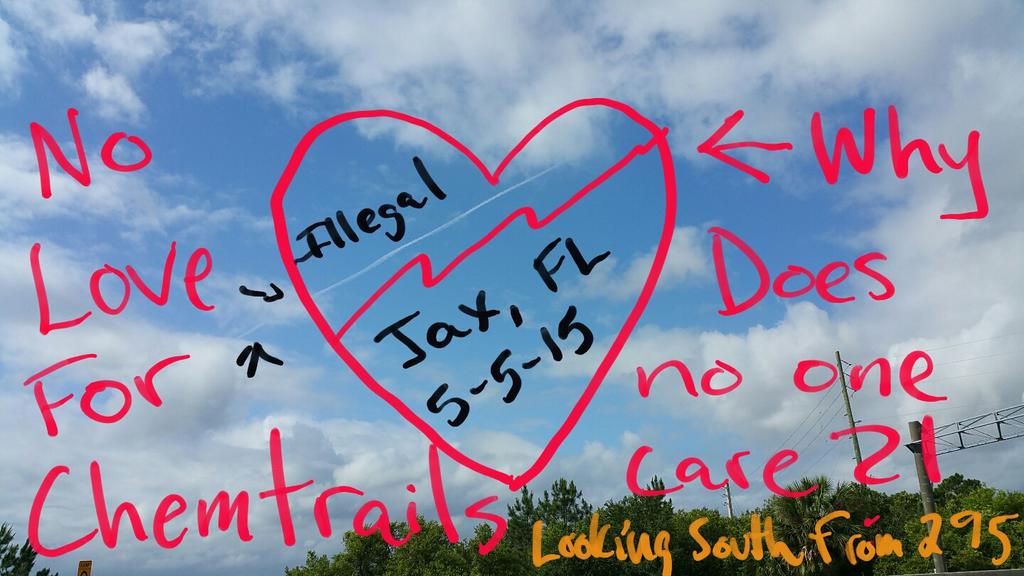 No
Love
For
Chemtrails
Illegal
Jax, FL
5-5-15
Why
Does
no one
care 21
Looking South from 295